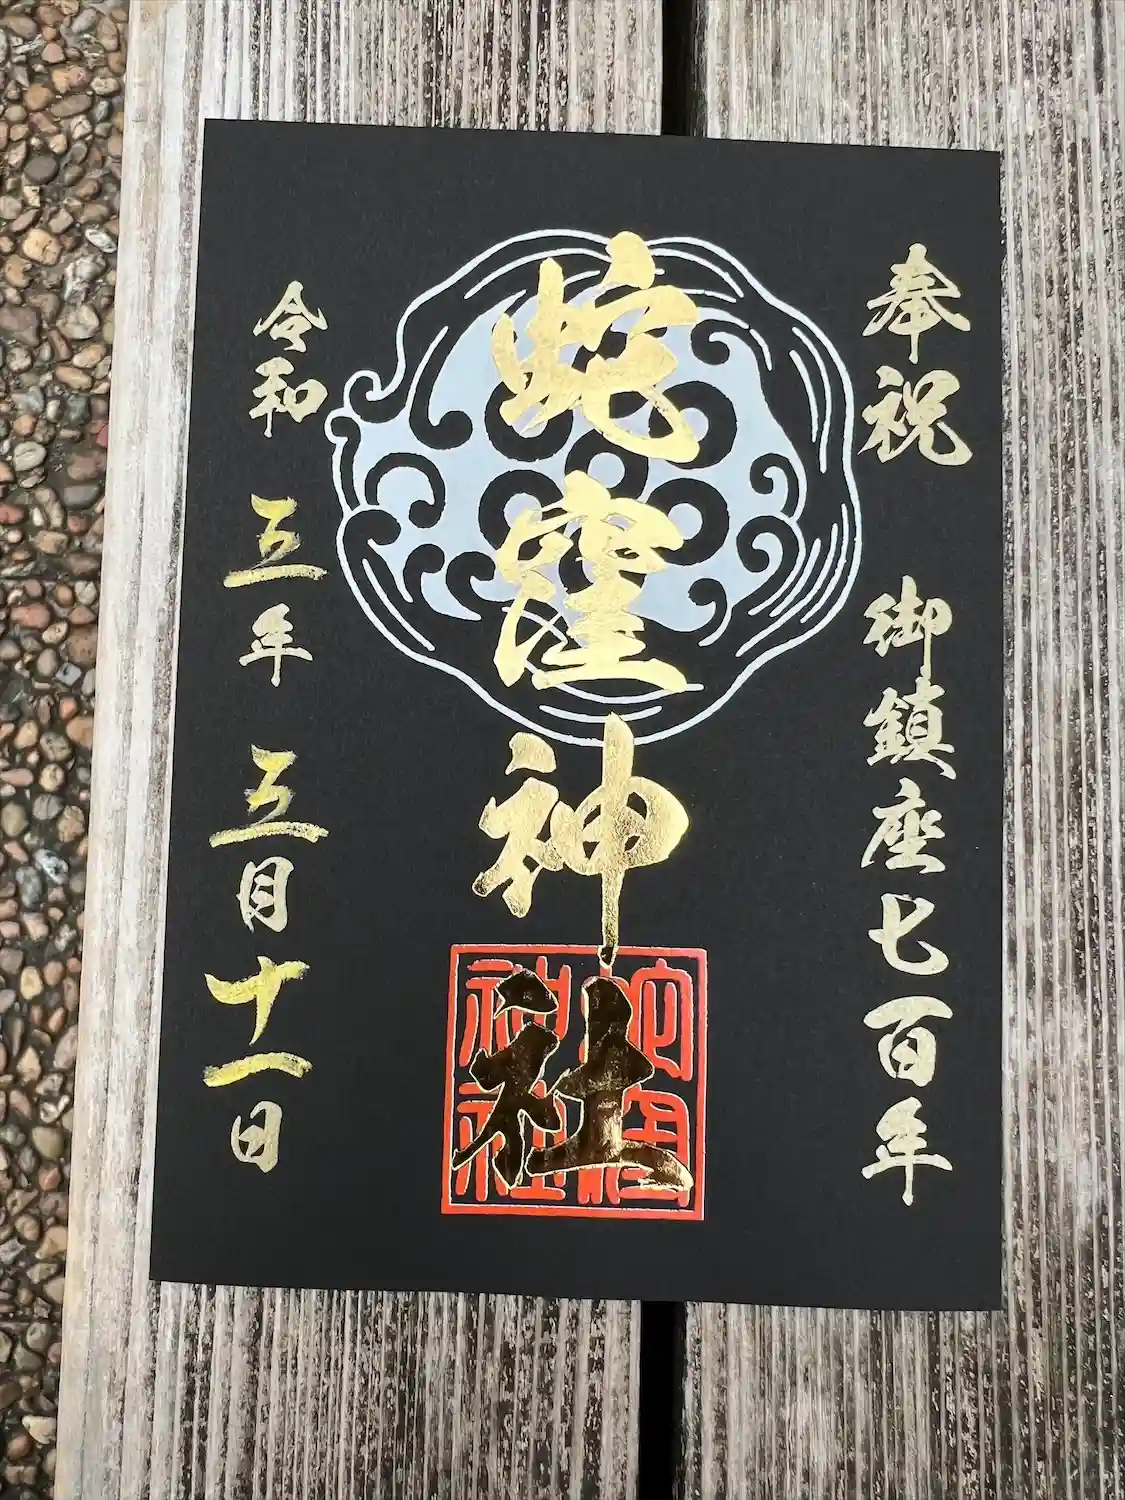 奉祝 御鎮座七百年
蛇窪神社
蛇窪神社
令和 五年 五月十一日